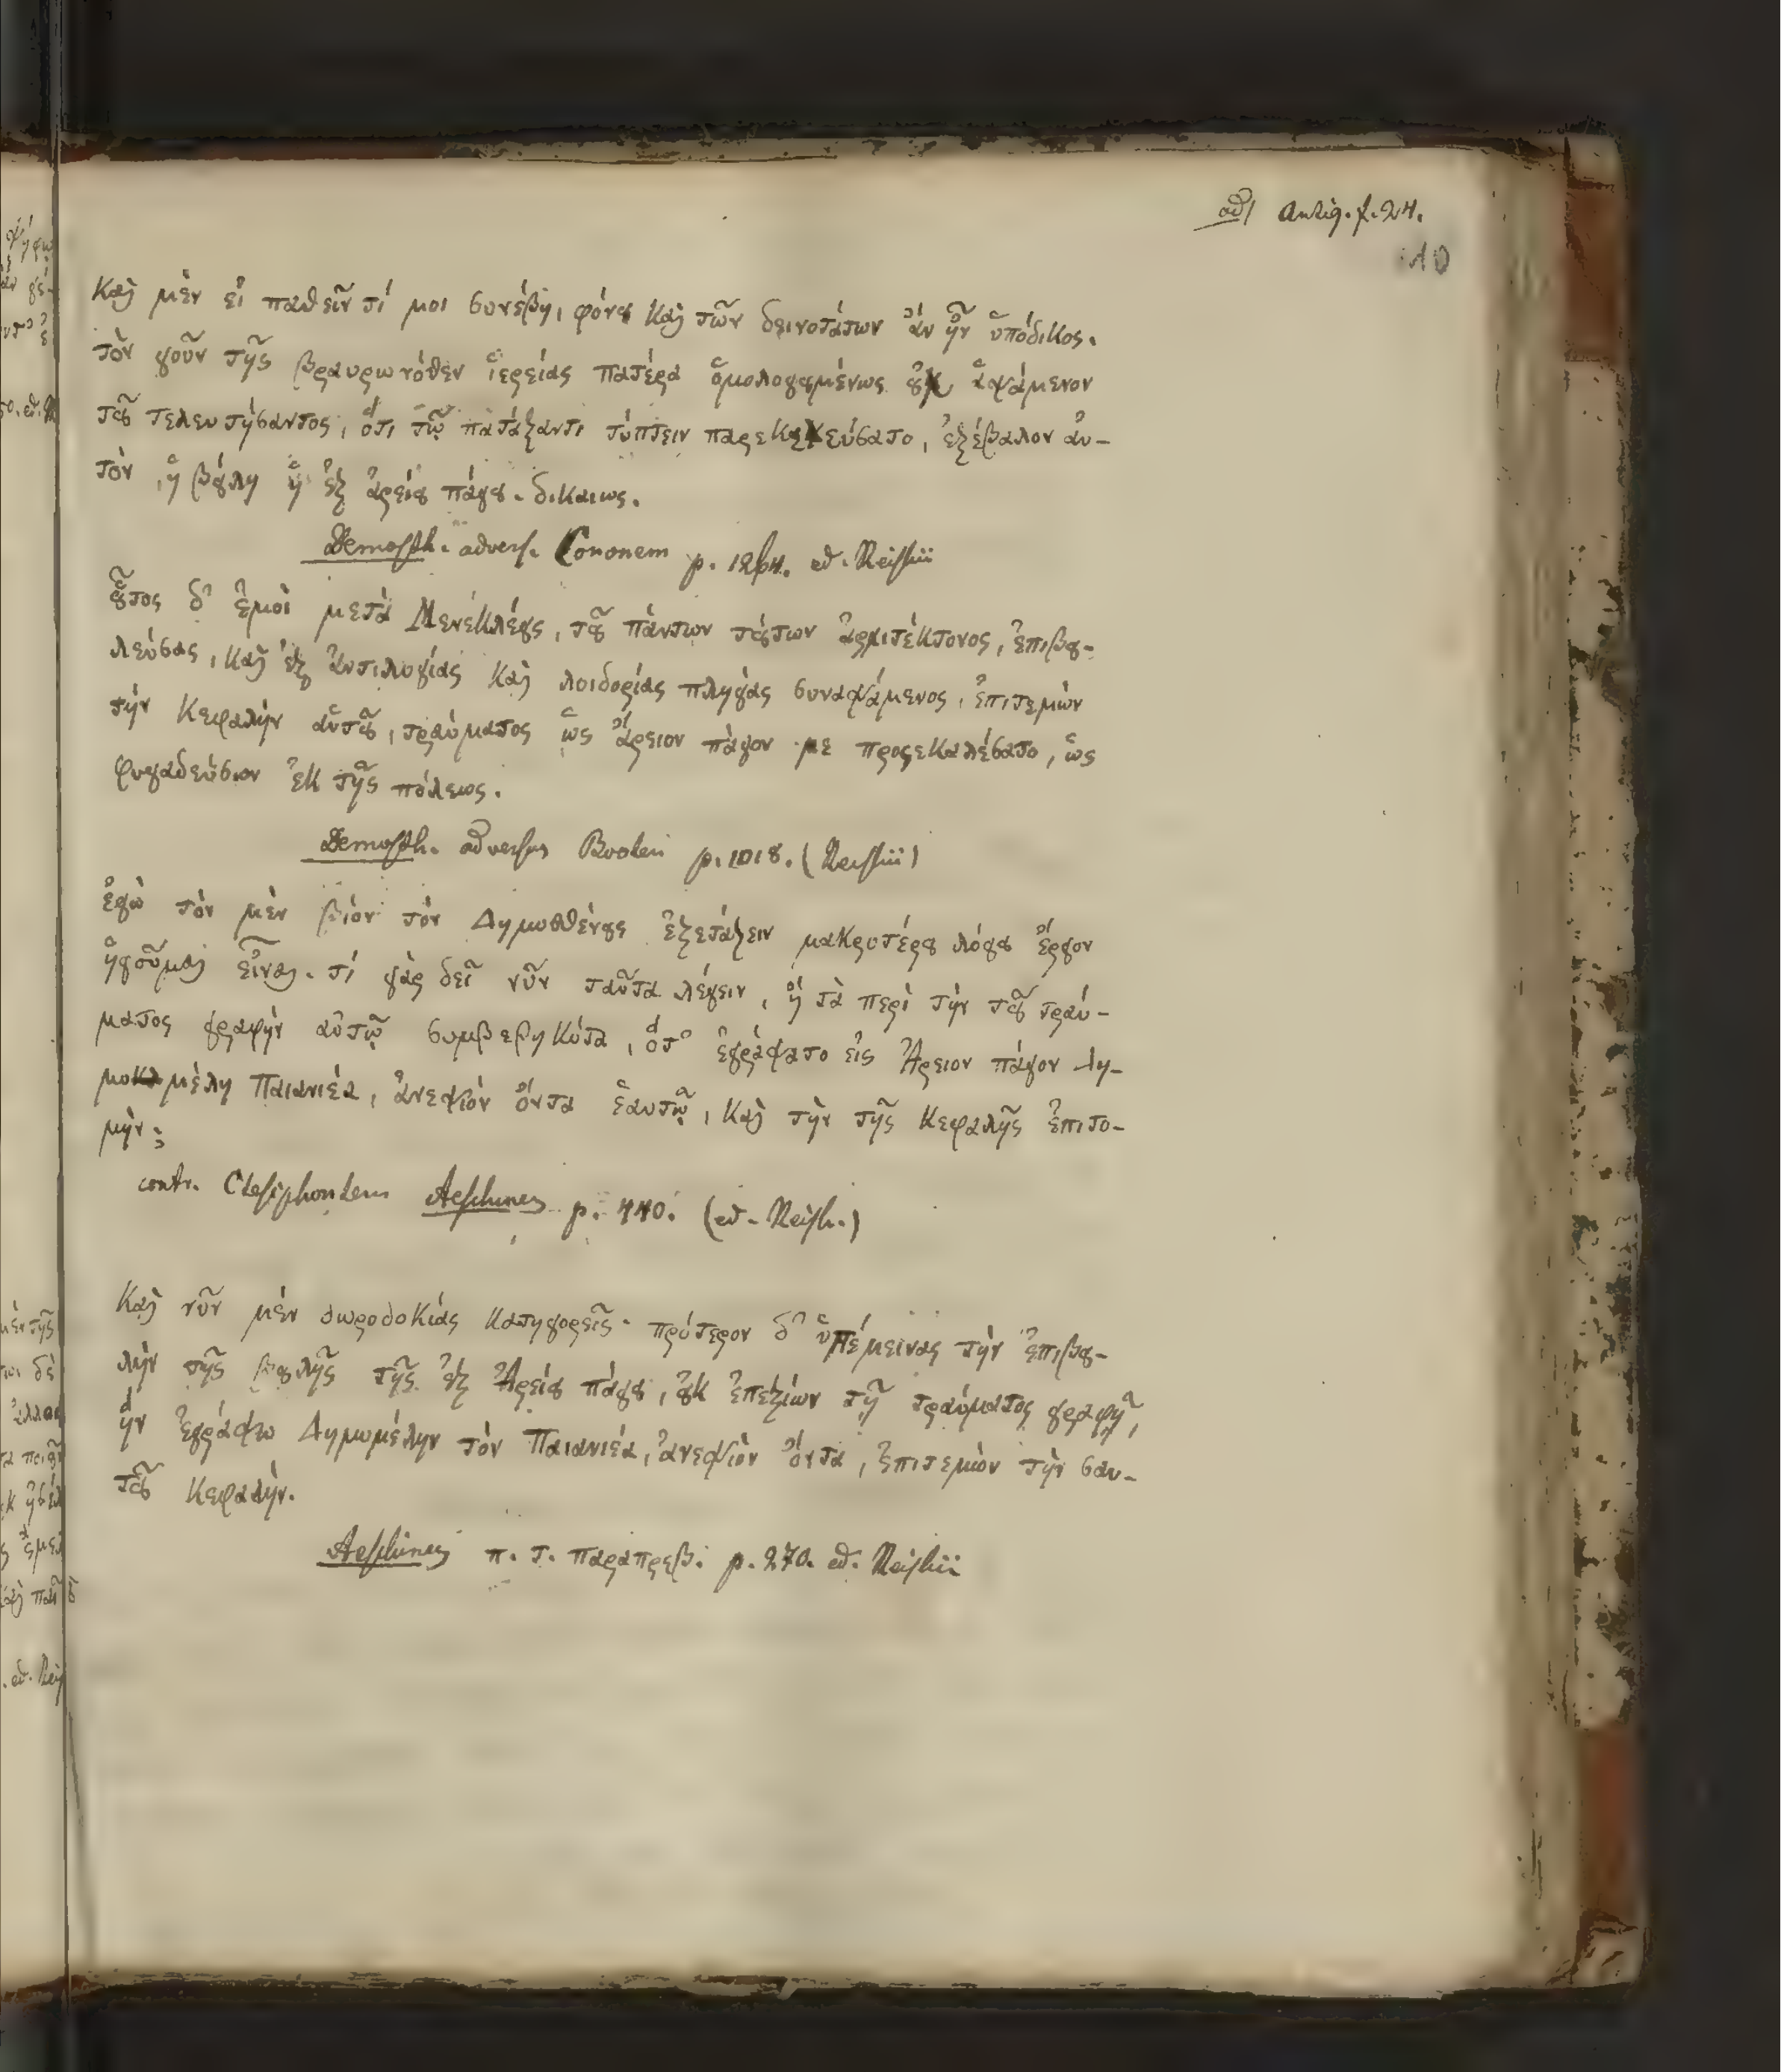 ad Antig. p. 24.
10
Καὶ μὲν εἰ παθεῖν τί μοι συνέβη, φόνου καὶ τῶν δεινοτάτων ἂν ἦν ὑπόδικος.
τὸν γοῦν τῆς βραυρωνόθεν ἱερείας πατέρα ὁμολογουμένως οὐχ ἁψάμενον
τοῦ τελευτήσαντος, ὅτι τῷ πατάξαντι τύπτειν παρεκελεύσατο, ἐξέβαλον αὐ-
τὸν, ἡ βουλὴ ἡ ἐξ ἀρείου πάγου. δικαιως.
Demosth. advers. Cononem p. 1264. ed. Reiskii
οὗτος δ' ἐμοὶ μετὰ Μενεκλέους, τοῦ πάντων τούτων ἀρχιτέκτονος, ἐπιβου-
λεύσας, καὶ ἐξ ἀντιλογίας καὶ λοιδορίας πληγάς συναψάμενος, ἐπιτεμὼν
τὴν κεφαλὴν αὑτοῦ, τραύματος ὡς ἄρειον πάγον με προςεκαλέσατο, ὡς
φυγαδεύσων ἐκ τῆς πόλεως.
Demosth. adversus Bootum p. 1018. (Reiskii)
ἐγὼ τὸν μὲν βίον τὸν Δημοσθένους ἐξετάζειν μακροτέρου λόγου ἔργον
ἡγοῦμαι εἶναι. τί γὰρ δεῖ νῦν ταῦτα λέγειν, ἢ τὰ περὶ τὴν τοῦ τραύ-
ματος γραφὴν αὐτῷ συμβεβηκότα, ὅτ' ἐγράψατο εἰς Ἄρειον πάγον Δη-
μομέλη Παιανιέα, ἀνεψιὸν ὄντα ἑαυτῷ, καὶ τὴν τῆς κεφαλῆς ἐπιτο-
μήν;
contr. Ctesiphontem Aeschines p. 440. (ed. Reisk.)
Καὶ νῦν μὲν δωροδοκίας κατηγορεῖς. πρότερον δ' ὑπέμεινας τὴν ἐπιβο-
λὴν τῆς βουλῆς τῆς ἐξ Ἀρείου πάγου, οὐκ ἐπεξιὼν τῇ τραύματος γραφῇ,
ἣν ἐγράψω Δημομέλην τὸν Παιανιέα, ἀνεψιὸν ὄντα, ἐπιτεμὼν τὴν σαυ-
τοῦ κεφαλήν.
Aeschines π. τ. παραπρεσβ. p. 270. ed. Reiskii